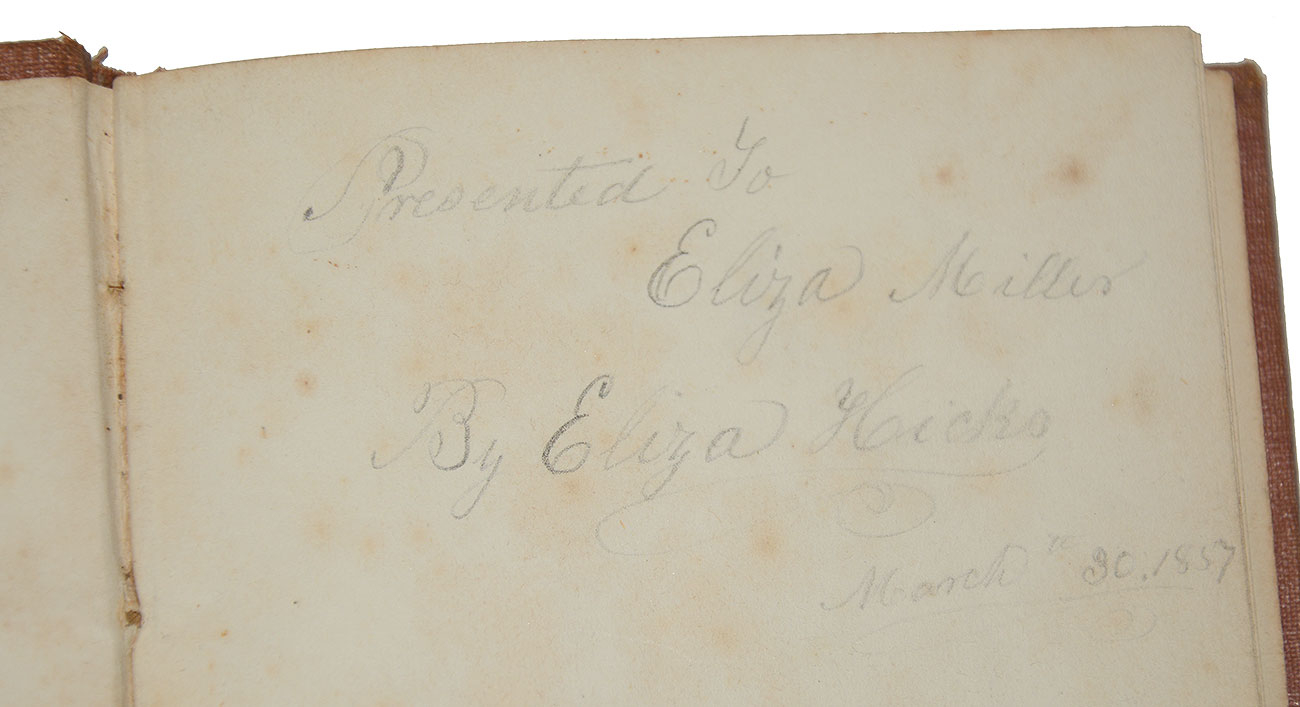 Presented To
Eliza Miller
By Eliza Hicks
March 30, 1857